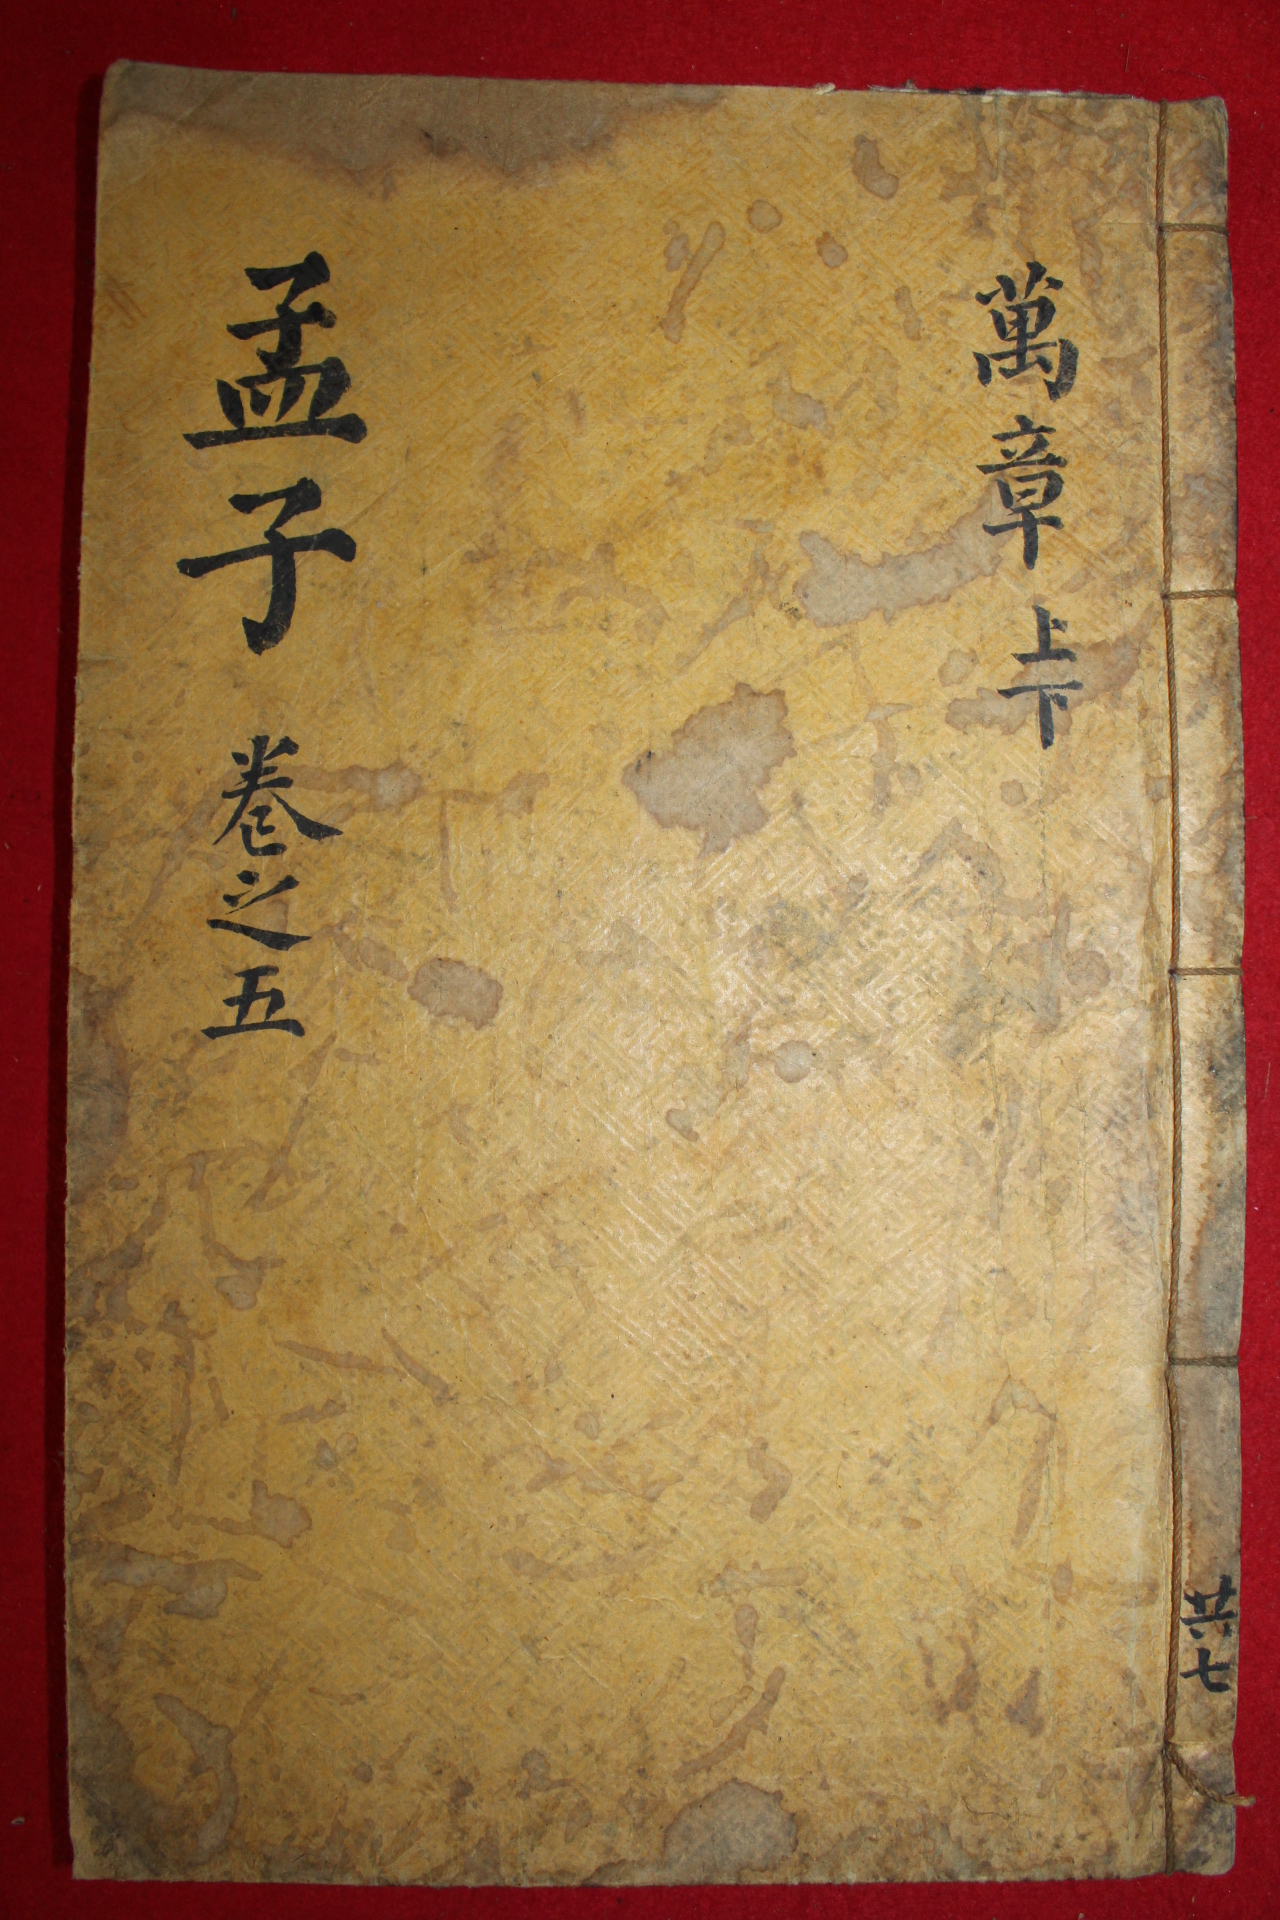 共七
萬章 上下
孟子 卷之五